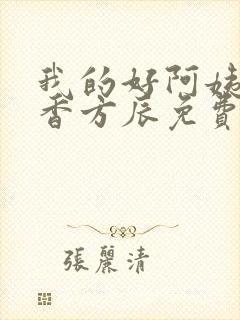 我的好阿姨
香方辰免費
張麗清